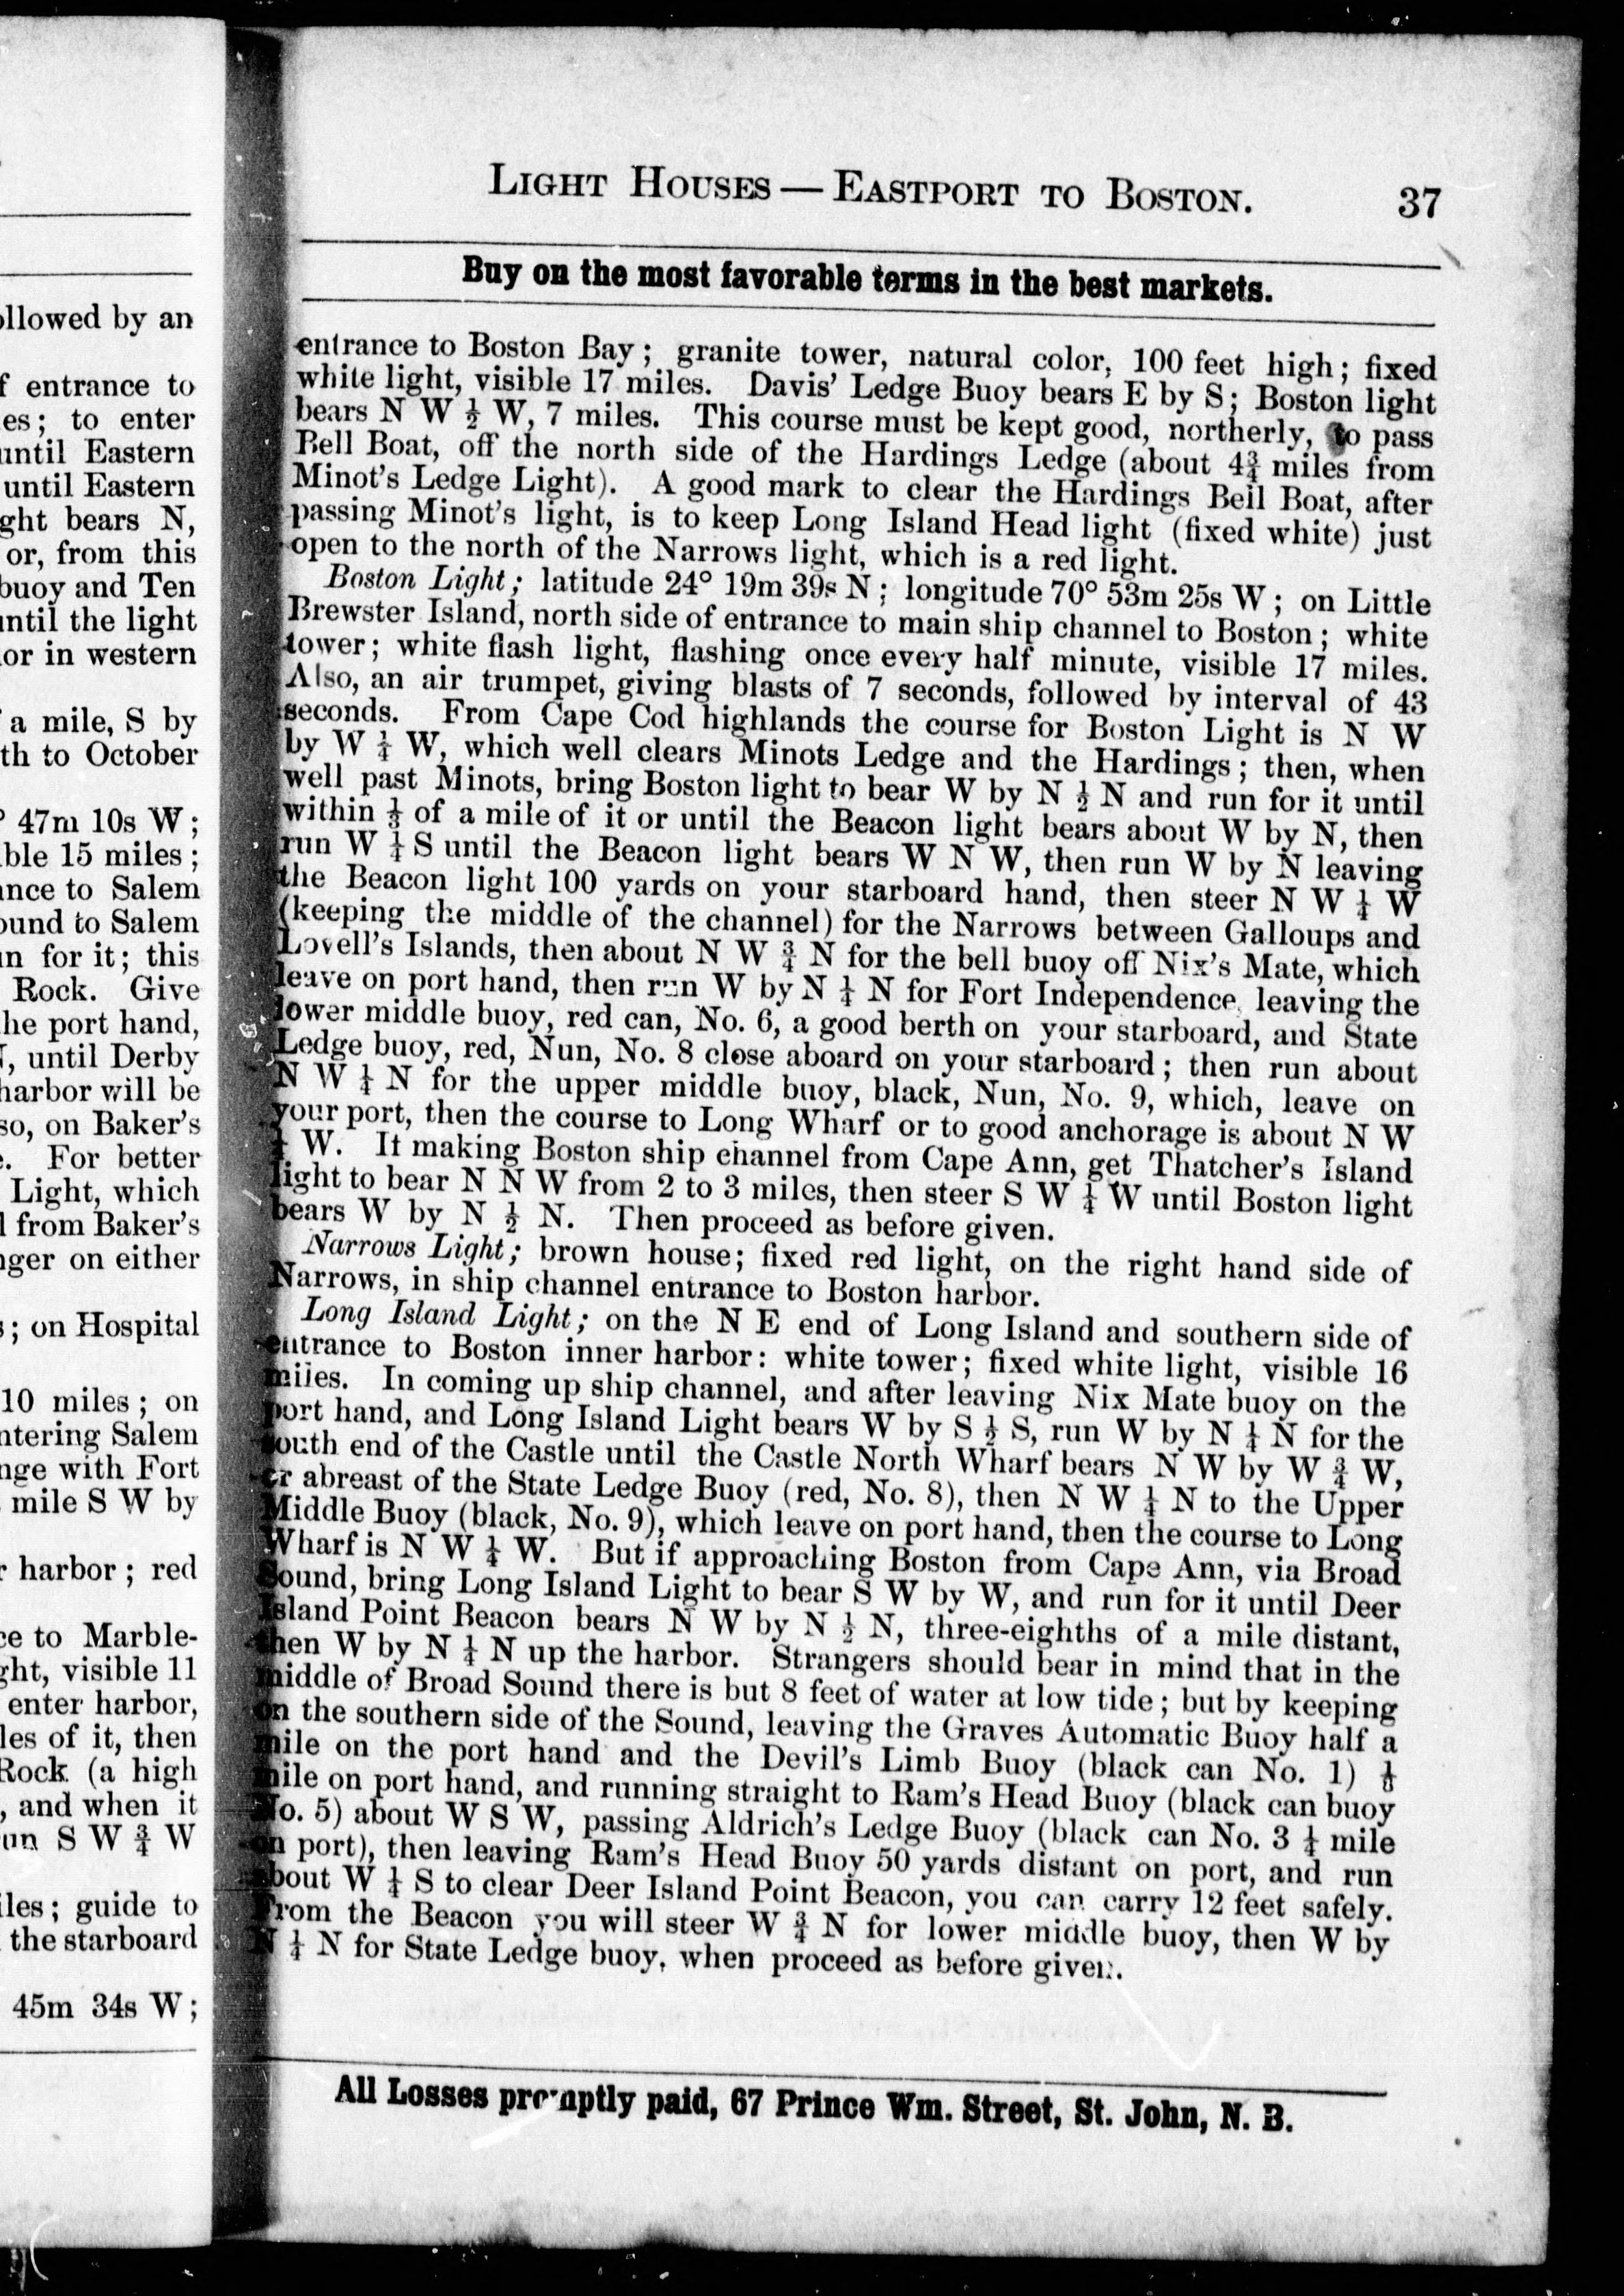 ollowed by an
f entrance to
es; to enter
until Eastern
until Eastern
ght bears N,
or, from this
buoy and Ten
until the light
or in western
a mile, S by
th to October
° 47m 10s W;
ble 15 miles;
ance to Salem
ound to Salem
n for it; this
Rock. Give
he port hand,
, until Derby
harbor will be
so, on Baker's
. For better
Light, which
l from Baker's
nger on either
s; on Hospital
10 miles; on
ntering Salem
nge with Fort
mile S W by
r harbor; red
ce to Marble-
ght, visible 11
enter harbor,
les of it, then
Rock (a high
, and when it
un S W ¾ W
iles; guide to
the starboard
45m 34s W;
LIGHT HOUSES — EASTPORT TO BOSTON. 37
Buy on the most favorable terms in the best markets.
entrance to Boston Bay; granite tower, natural color, 100 feet high; fixed
white light, visible 17 miles. Davis' Ledge Buoy bears E by S; Boston light
bears N W ½ W, 7 miles. This course must be kept good, northerly, to pass
Bell Boat, off the north side of the Hardings Ledge (about 4¾ miles from
Minot's Ledge Light). A good mark to clear the Hardings Bell Boat, after
passing Minot's light, is to keep Long Island Head light (fixed white) just
open to the north of the Narrows light, which is a red light.
Boston Light; latitude 24° 19m 39s N; longitude 70° 53m 25s W; on Little
Brewster Island, north side of entrance to main ship channel to Boston; white
tower; white flash light, flashing once every half minute, visible 17 miles.
Also, an air trumpet, giving blasts of 7 seconds, followed by interval of 43
seconds. From Cape Cod highlands the course for Boston Light is N W
by W ¼ W, which well clears Minots Ledge and the Hardings; then, when
well past Minots, bring Boston light to bear W by N ½ N and run for it until
within ⅓ of a mile of it or until the Beacon light bears about W by N, then
run W ¼ S until the Beacon light bears W N W, then run W by N leaving
the Beacon light 100 yards on your starboard hand, then steer N W ¼ W
(keeping the middle of the channel) for the Narrows between Galloups and
Lovell's Islands, then about N W ¾ N for the bell buoy off Nix's Mate, which
leave on port hand, then run W by N ¼ N for Fort Independence, leaving the
lower middle buoy, red can, No. 6, a good berth on your starboard, and State
Ledge buoy, red, Nun, No. 8 close aboard on your starboard; then run about
N W ¼ N for the upper middle buoy, black, Nun, No. 9, which, leave on
your port, then the course to Long Wharf or to good anchorage is about N W
¼ W. If making Boston ship channel from Cape Ann, get Thatcher's Island
light to bear N N W from 2 to 3 miles, then steer S W ¼ W until Boston light
bears W by N ½ N. Then proceed as before given.
Narrows Light; brown house; fixed red light, on the right hand side of
Narrows, in ship channel entrance to Boston harbor.
Long Island Light; on the N E end of Long Island and southern side of
entrance to Boston inner harbor: white tower; fixed white light, visible 16
miles. In coming up ship channel, and after leaving Nix Mate buoy on the
port hand, and Long Island Light bears W by S ½ S, run W by N ¼ N for the
south end of the Castle until the Castle North Wharf bears N W by W ¾ W,
or abreast of the State Ledge Buoy (red, No. 8), then N W ¼ N to the Upper
Middle Buoy (black, No. 9), which leave on port hand, then the course to Long
Wharf is N W ¼ W. But if approaching Boston from Cape Ann, via Broad
Sound, bring Long Island Light to bear S W by W, and run for it until Deer
Island Point Beacon bears N W by N ½ N, three-eighths of a mile distant,
then W by N ¼ N up the harbor. Strangers should bear in mind that in the
middle of Broad Sound there is but 8 feet of water at low tide; but by keeping
on the southern side of the Sound, leaving the Graves Automatic Buoy half a
mile on the port hand and the Devil's Limb Buoy (black can No. 1)
mile on port hand, and running straight to Ram's Head Buoy (black can buoy
No. 5) about W S W, passing Aldrich's Ledge Buoy (black can No. 3 ¼ mile
on port), then leaving Ram's Head Buoy 50 yards distant on port, and run
about W ¼ S to clear Deer Island Point Beacon, you can carry 12 feet safely.
From the Beacon you will steer W ¾ N for lower middle buoy, then W by
N ¼ N for State Ledge buoy, when proceed as before given.
All Losses promptly paid, 67 Prince Wm. Street, St. John, N. B.